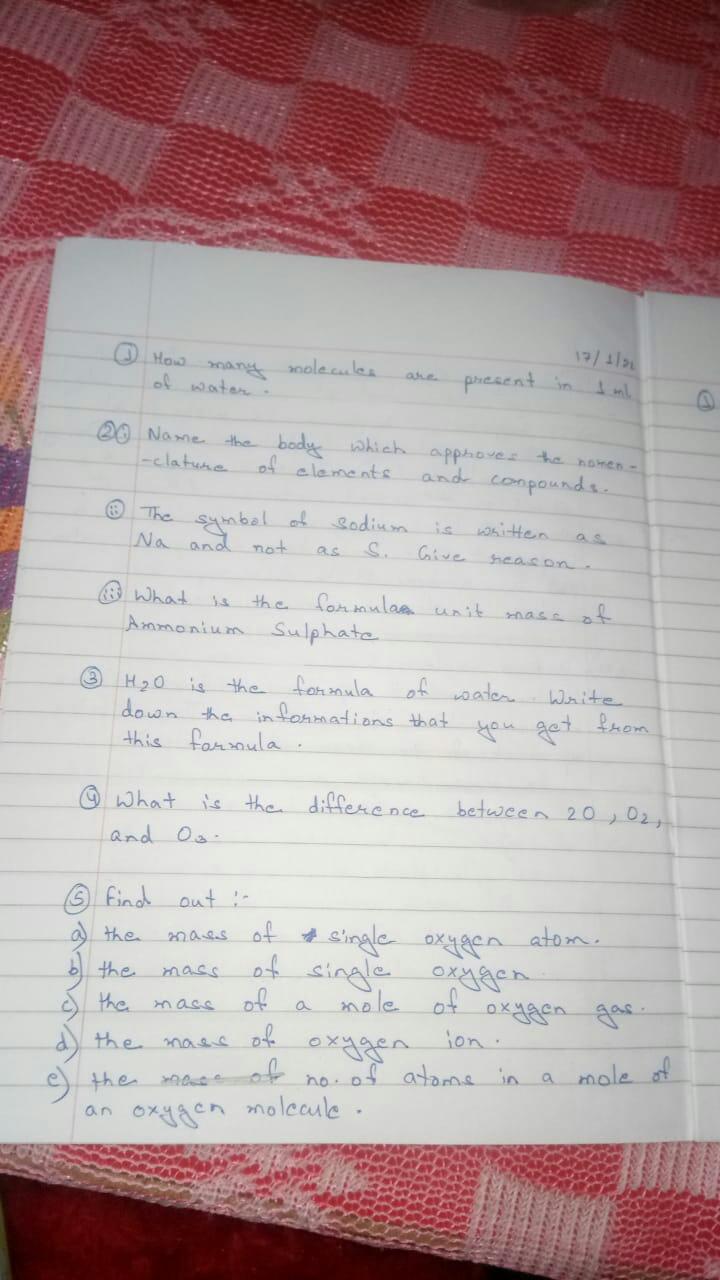 17/1/21
① How many molecules are present in 1 ml
of water.
② ⓘ Name the body which approves the nomen-
-clature of elements and compounds.
ⓘⓘ The symbol of Sodium is written as
Na and not as S. Give reason.
ⓘⓘⓘ What is the formula unit mass of
Ammonium Sulphate
③ H2O is the formula of water. Write
down the informations that you get from
this formula.
④ What is the difference between 2O, O2,
and O3.
⑤ Find out :-
a) the mass of single oxygen atom.
b) the mass of single oxygen.
c) the mass of a mole of oxygen gas.
d) the mass of oxygen ion.
e) the mass of no. of atoms in a mole of
an oxygen molecule.
①